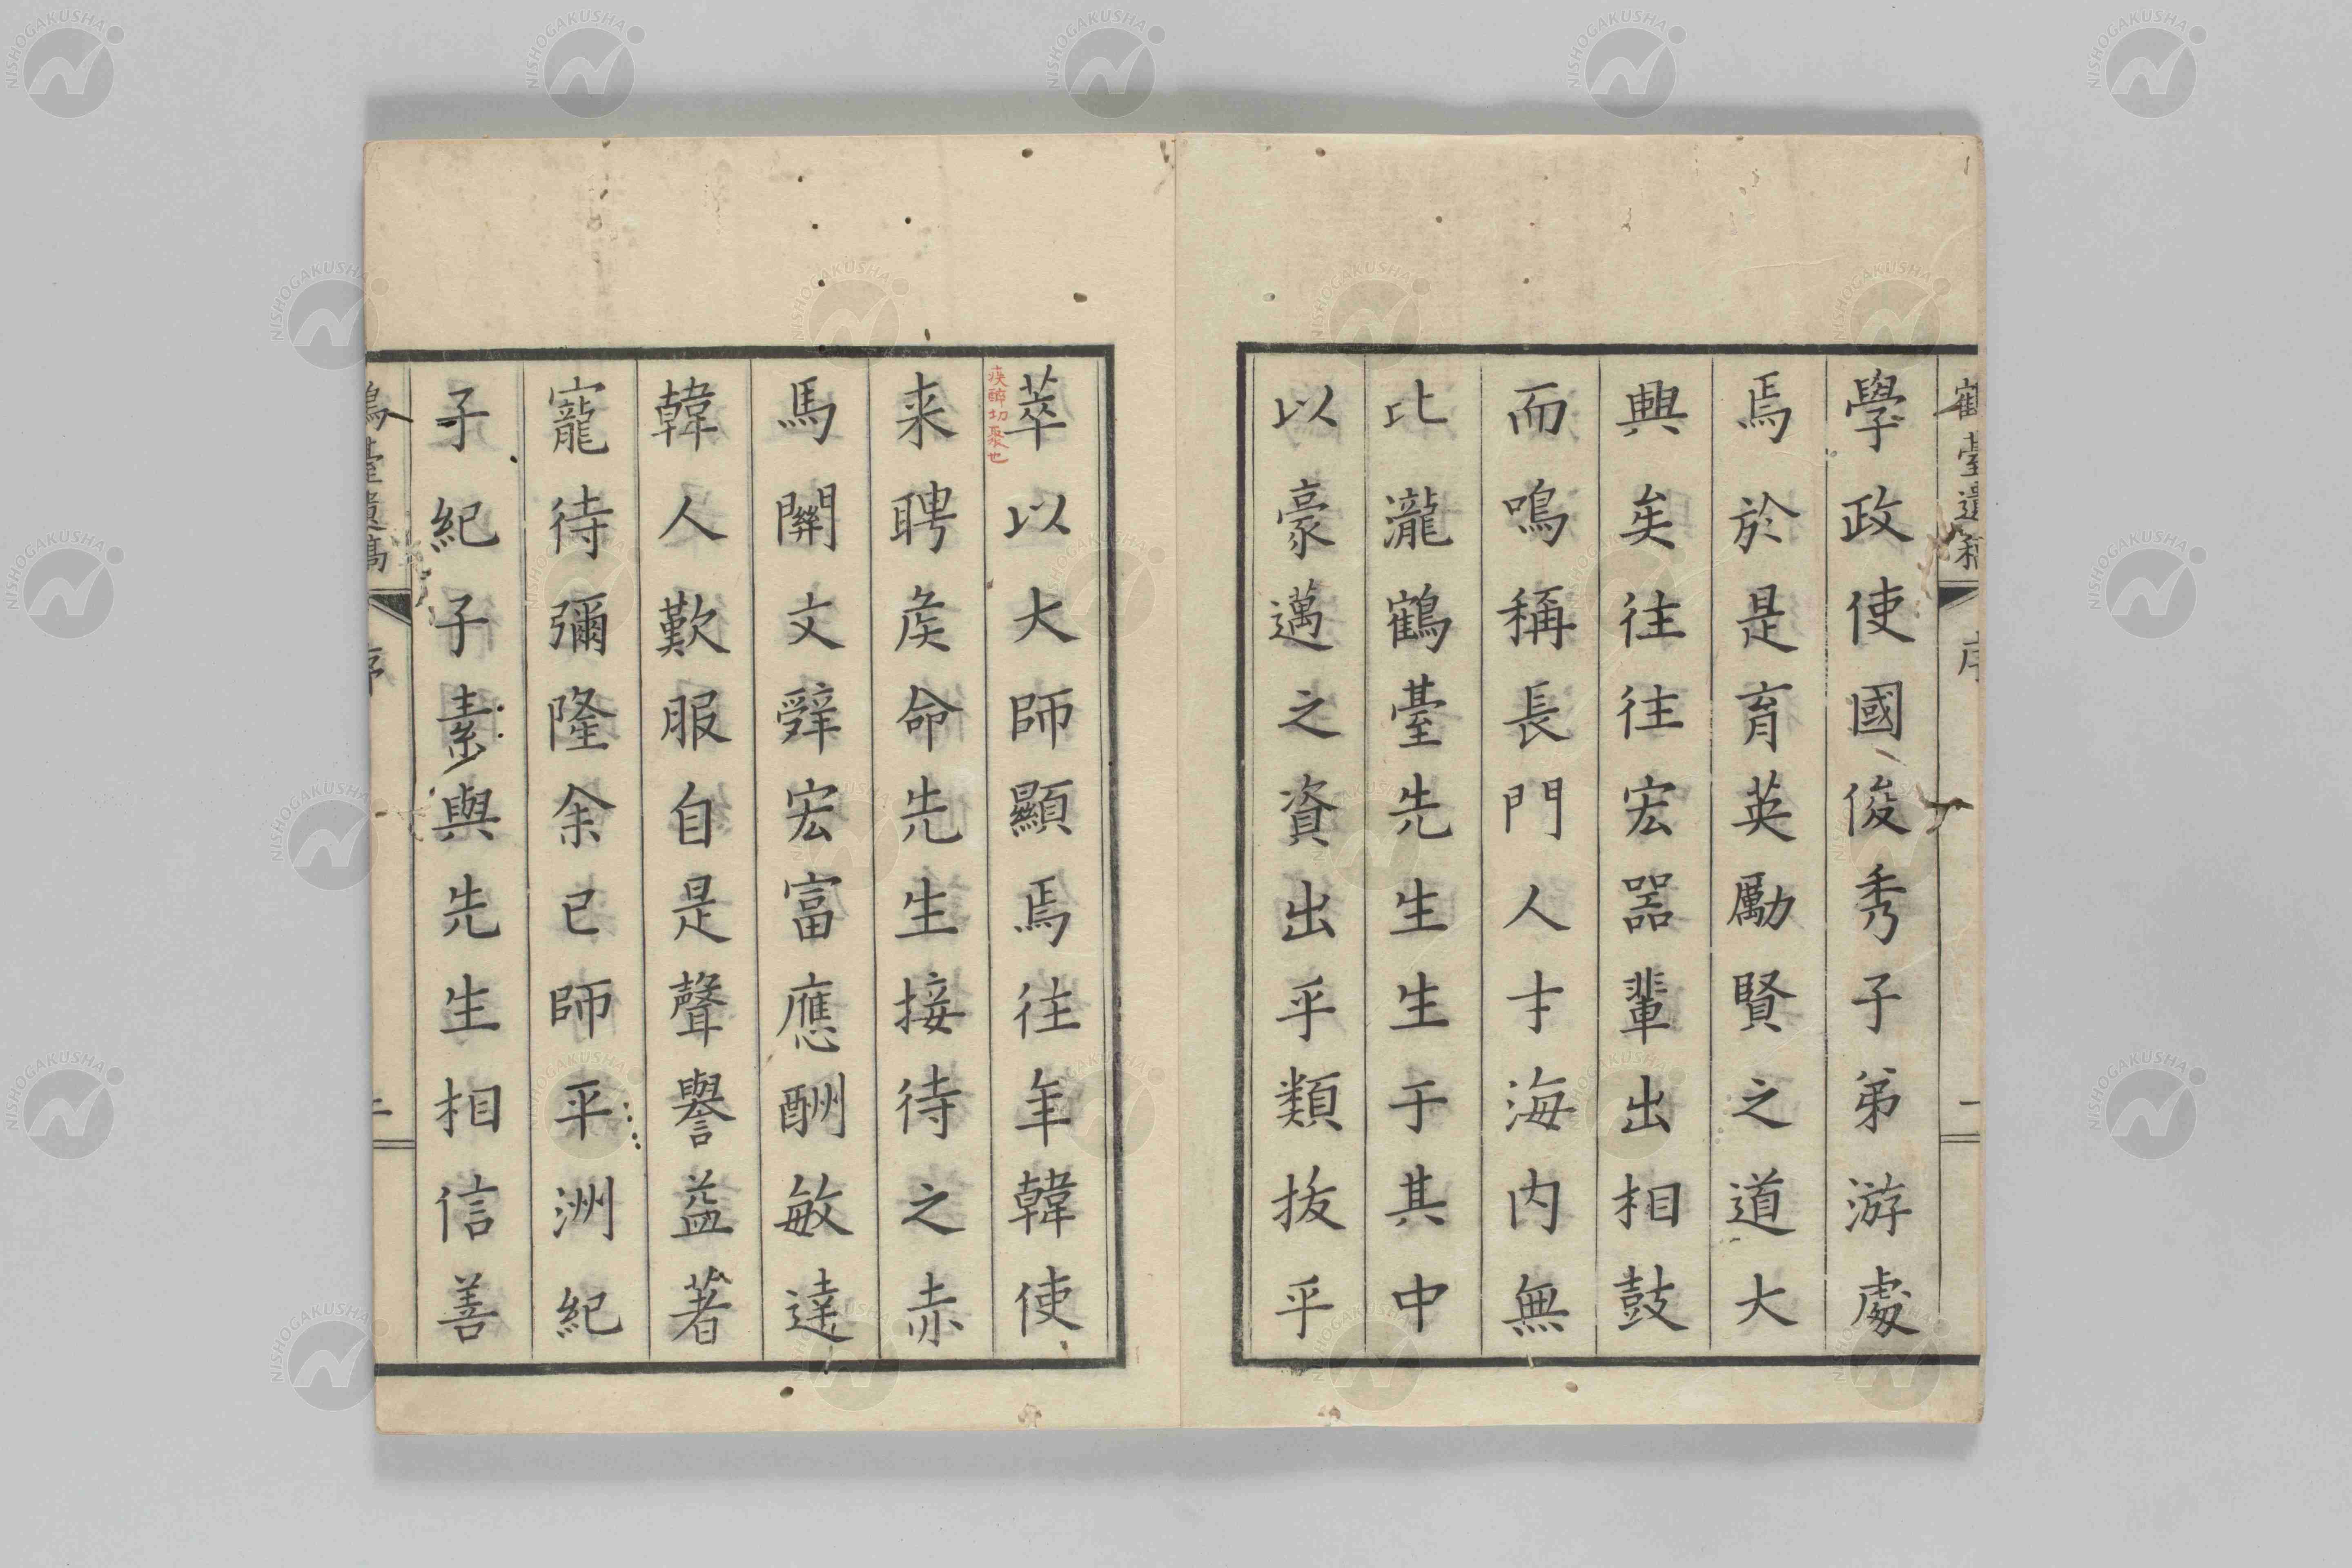 鶴臺遺稿
序
二
學政使國俊秀子弟游處
焉於是育英勵賢之道大
興矣往往宏器輩出相鼓
而鳴稱長門人才海内無
比瀧鶴臺先生生于其中
以豪邁之資出乎類拔乎
萃以大師顯焉往年韓使
疾醉切聚也
来聘矦命先生接待之赤
馬關文辭宏富應酬敏達
韓人歎服自是聲譽益著
寵待彌隆余已師平洲紀
子紀子素與先生相信善
鶴臺遺稿
序
NISHOGAKUSHA